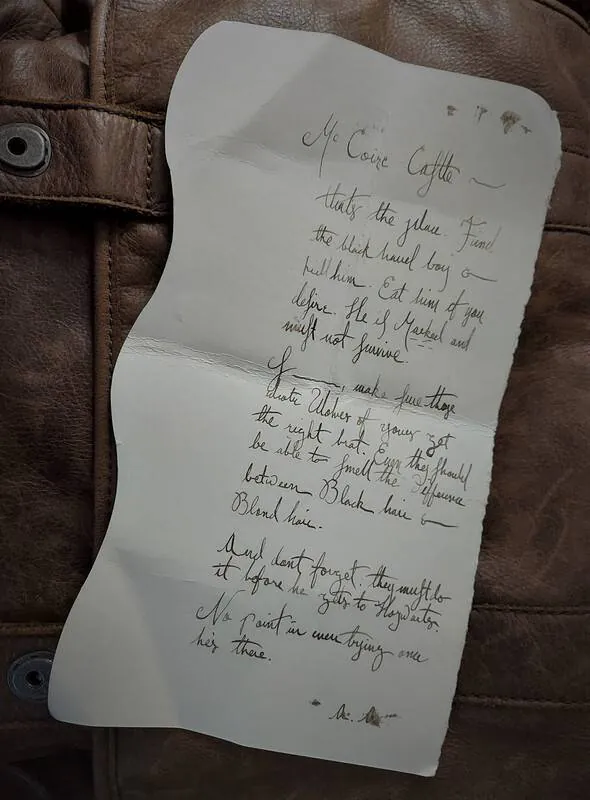 McCoire Castle ~
thats the place. Find
the black haired boy &
kill him. Eat him if you
desire. He is Marked and
must not survive.
F——, make sure those
idiotic Wolves of yours get
the right brat. Even they should
be able to smell the difference
between Black hair &
Blond hair.
And dont forget. they must do
it before he gets to Hogwarts.
No point in even trying once
he's there.